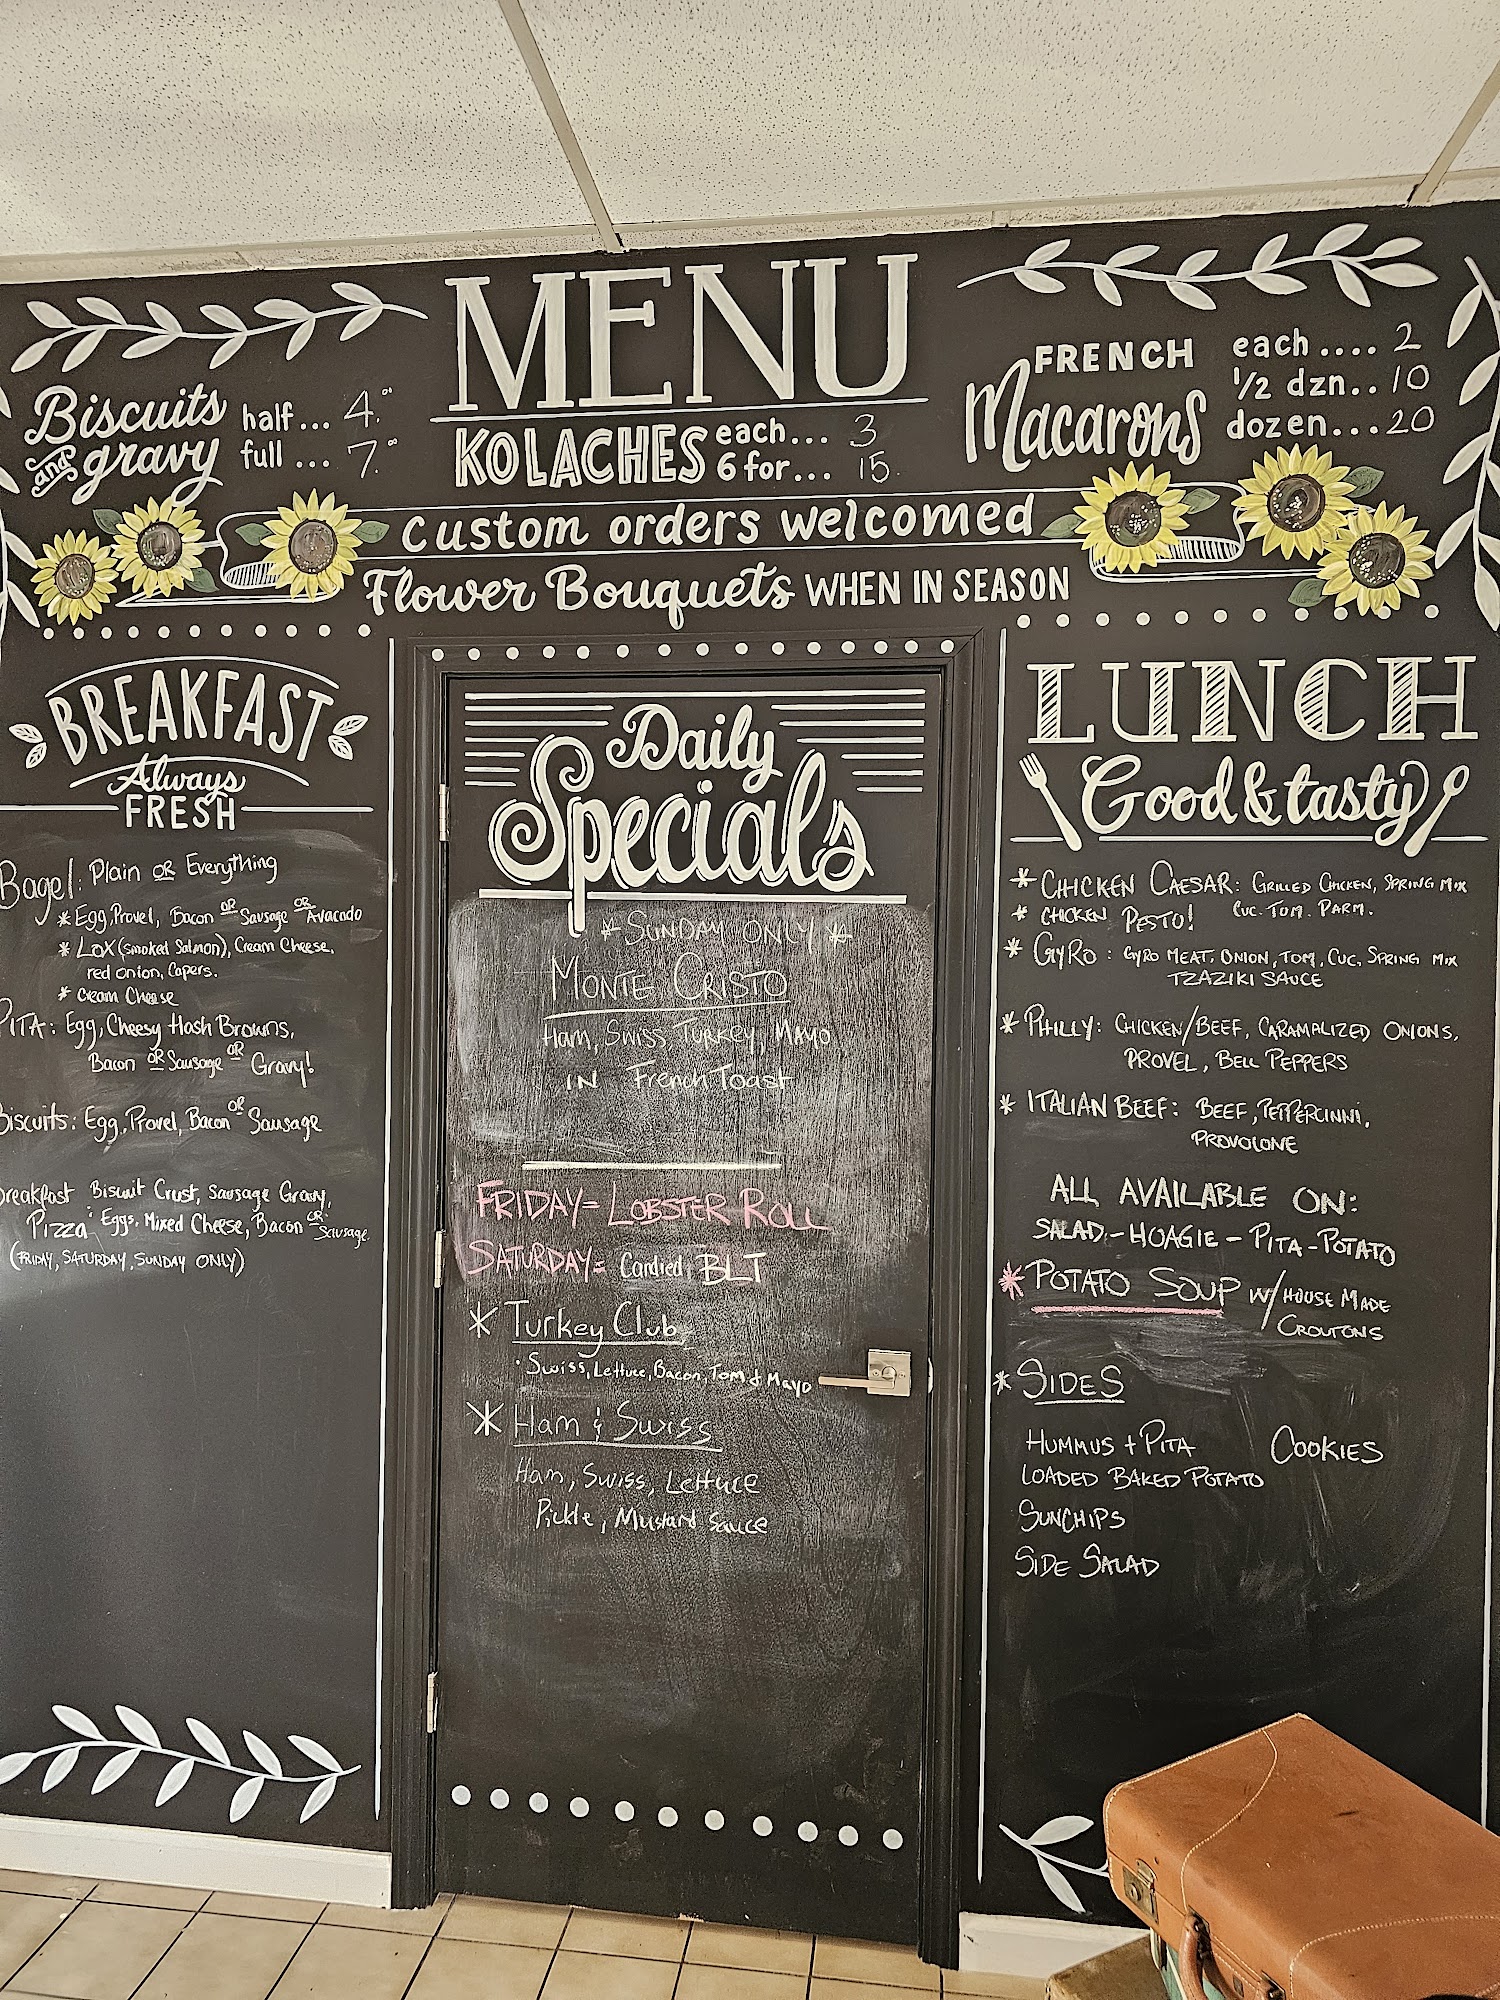 MENU
Biscuits and gravy
half... 4.00
full ... 7.00
KOLACHES
each... 3
6 for... 15.
FRENCH Macarons
each.... 2
1/2 dzn.. 10
dozen...20
custom orders welcomed
Flower Bouquets WHEN IN SEASON
BREAKFAST
Always
FRESH
Bagel: Plain OR Everything
* Egg, Provel, Bacon OR Sausage OR Avacado
* LOX (smoked Salmon), Cream Cheese,
red onion, Capers.
* Cream Cheese
PITA: Egg, Cheesy Hash Browns,
Bacon OR Sausage OR Gravy!
Biscuits: Egg, Provel, Bacon OR Sausage
Breakfast Biscuit Crust, Sausage Gravy,
Pizza: Eggs, Mixed Cheese, Bacon OR Sausage
(FRIDAY, SATURDAY, SUNDAY ONLY)
Daily
Specials
* SUNDAY ONLY *
MONTE CRISTO
Ham, Swiss Turkey, Mayo
IN French Toast
FRIDAY= LOBSTER ROLL
SATURDAY= Candied BLT
* Turkey Club
· Swiss, Lettuce, Bacon, Tom & Mayo
* Ham & Swiss
Ham, Swiss, Lettuce
Pickle, Mustard Sauce
LUNCH
Good & tasty
* CHICKEN CAESAR: GRILLED CHICKEN, SPRING MIX
CUC. TOM. PARM.
* CHICKEN PESTO!
* GYRO: GYRO MEAT, ONION, TOM, CUC, SPRING MIX
TZAZIKI SAUCE
* PHILLY: CHICKEN/BEEF, CARAMALIZED ONIONS,
PROVEL, BELL PEPPERS
* ITALIAN BEEF: BEEF, PEPPERCINNI,
PROVOLONE
ALL AVAILABLE ON:
SALAD-HOAGIE-PITA-POTATO
* POTATO SOUP W/ HOUSE MADE
CROUTONS
* SIDES
HUMMUS + PITA
COOKIES
LOADED BAKED POTATO
SUNCHIPS
SIDE SALAD